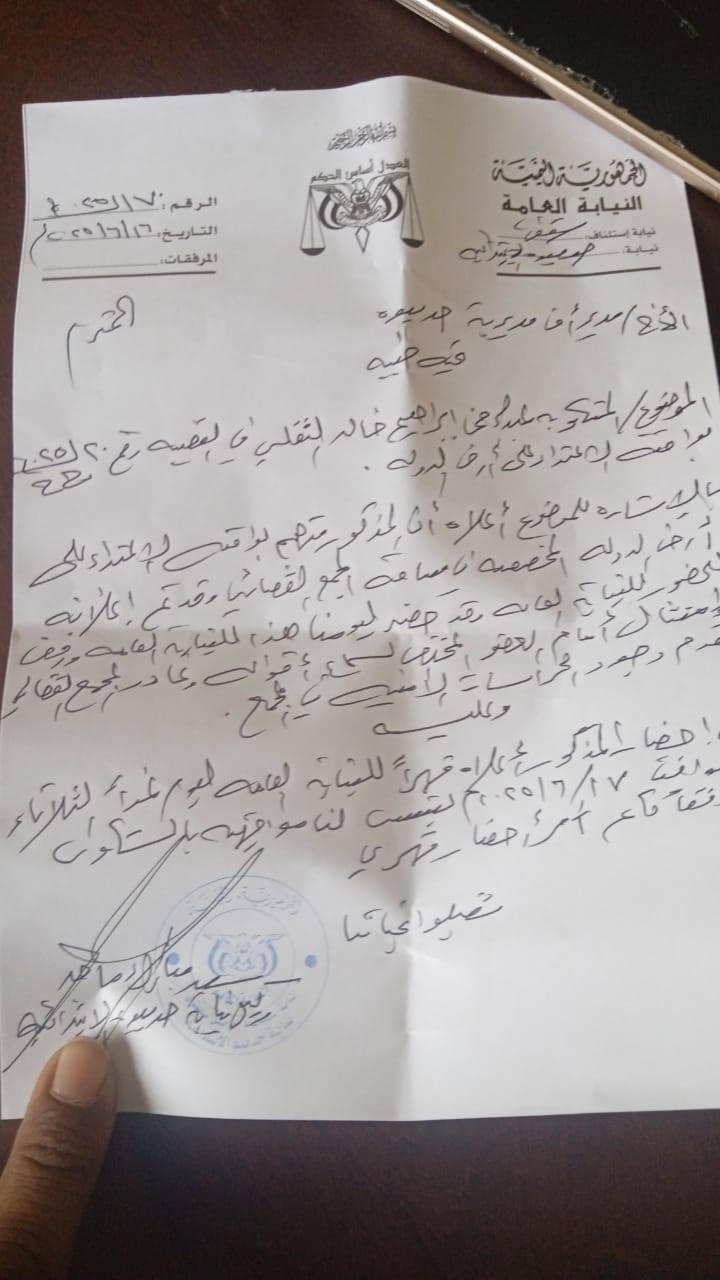 بسم الله الرحمن الرحيم
العدل أساس الحكم
الجمهورية اليمنية
النيابة العامة
نيابة إستئناف: سقطرى
نيابة: حديبوه الابتدائية
الرقم:
التاريخ: ١٦/٦/٢٠٢٥م
المرفقات:
الأخ/ مدير أمن مديرية حديبوه المحترم
تحية طيبة
الموضوع/ المشكو به ابراهيم خالد الثقلي في القضية رقم ٢٠ ٢٠٢٥
بواقعة الاعتداء على أرض الدولة.
بالإشارة للموضوع أعلاه أن المذكور متهم بواقعة الاعتداء على
أرض الدولة المخصصة مساحة المجمع القضائي وقد تم إعلانه
للحضور للنيابة العامة وقد حضر ليومنا هذا للنيابة العامة ورفض
الامتثال أمام العضو المختص لسماع أقواله وغادر المجمع القضائي
لعدم وجود الحراسات الأمنية في المجمع.
وعليه
إحضار المذكور أعلاه قهراً للنيابة العامة ليوم غداً الثلاثاء
الموافق ١٧/٦/٢٠٢٥م لنا مواجهته بالشكوى
وفقاً أمر إحضار قهري
تقبلوا تحياتنا
رئيس نيابة حديبوه الابتدائية